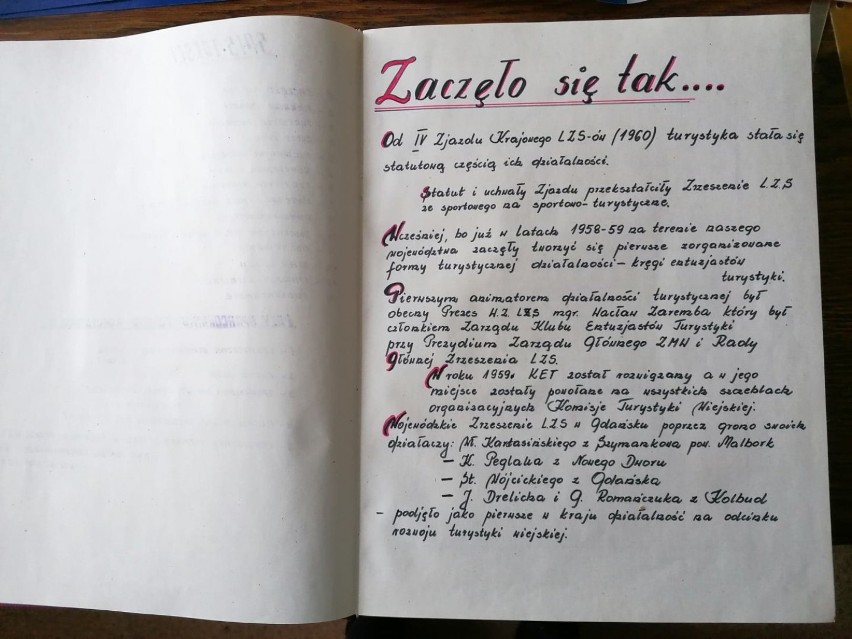 Zaczęło się tak....
Od IV Zjazdu Krajowego LZS-ów (1960) turystyka stała się
statutową częścią ich działalności.
Statut i uchwały Zjazdu przekształciły Zrzeszenie L.Z.S
ze sportowego na sportowo-turystyczne.
Wcześniej, bo już w latach 1958-59 na terenie naszego
województwa zaczęły tworzyć się pierwsze zorganizowane
formy turystycznej działalności — kręgi entuzjastów
turystyki.
Pierwszym animatorem działalności turystycznej był
obecny Prezes W.Z. LZS mgr. Wacław Zaremba który był
członkiem Zarządu Klubu Entuzjastów Turystyki
przy Prezydium Zarządu Głównego ZMW i Rady
Głównej Zrzeszenia LZS.
W roku 1959r. KET został rozwiązany a w jego
miejsce zostały powołane na wszystkich szczeblach
organizacyjnych Komisje Turystyki Wiejskiej.
Wojewódzkie Zrzeszenie LZS w Gdańsku poprzez grono swoich
działaczy: M. Kartasińskiego z Szymankowa pow. Malbork
— K. Peglaua z Nowego Dworu
— St. Wójcickiego z Gdańska
— J. Drelicha i G. Romańczuka z Kolbud
- podjęło jako pierwsze w kraju działalność na odcinku
rozwoju turystyki wiejskiej.